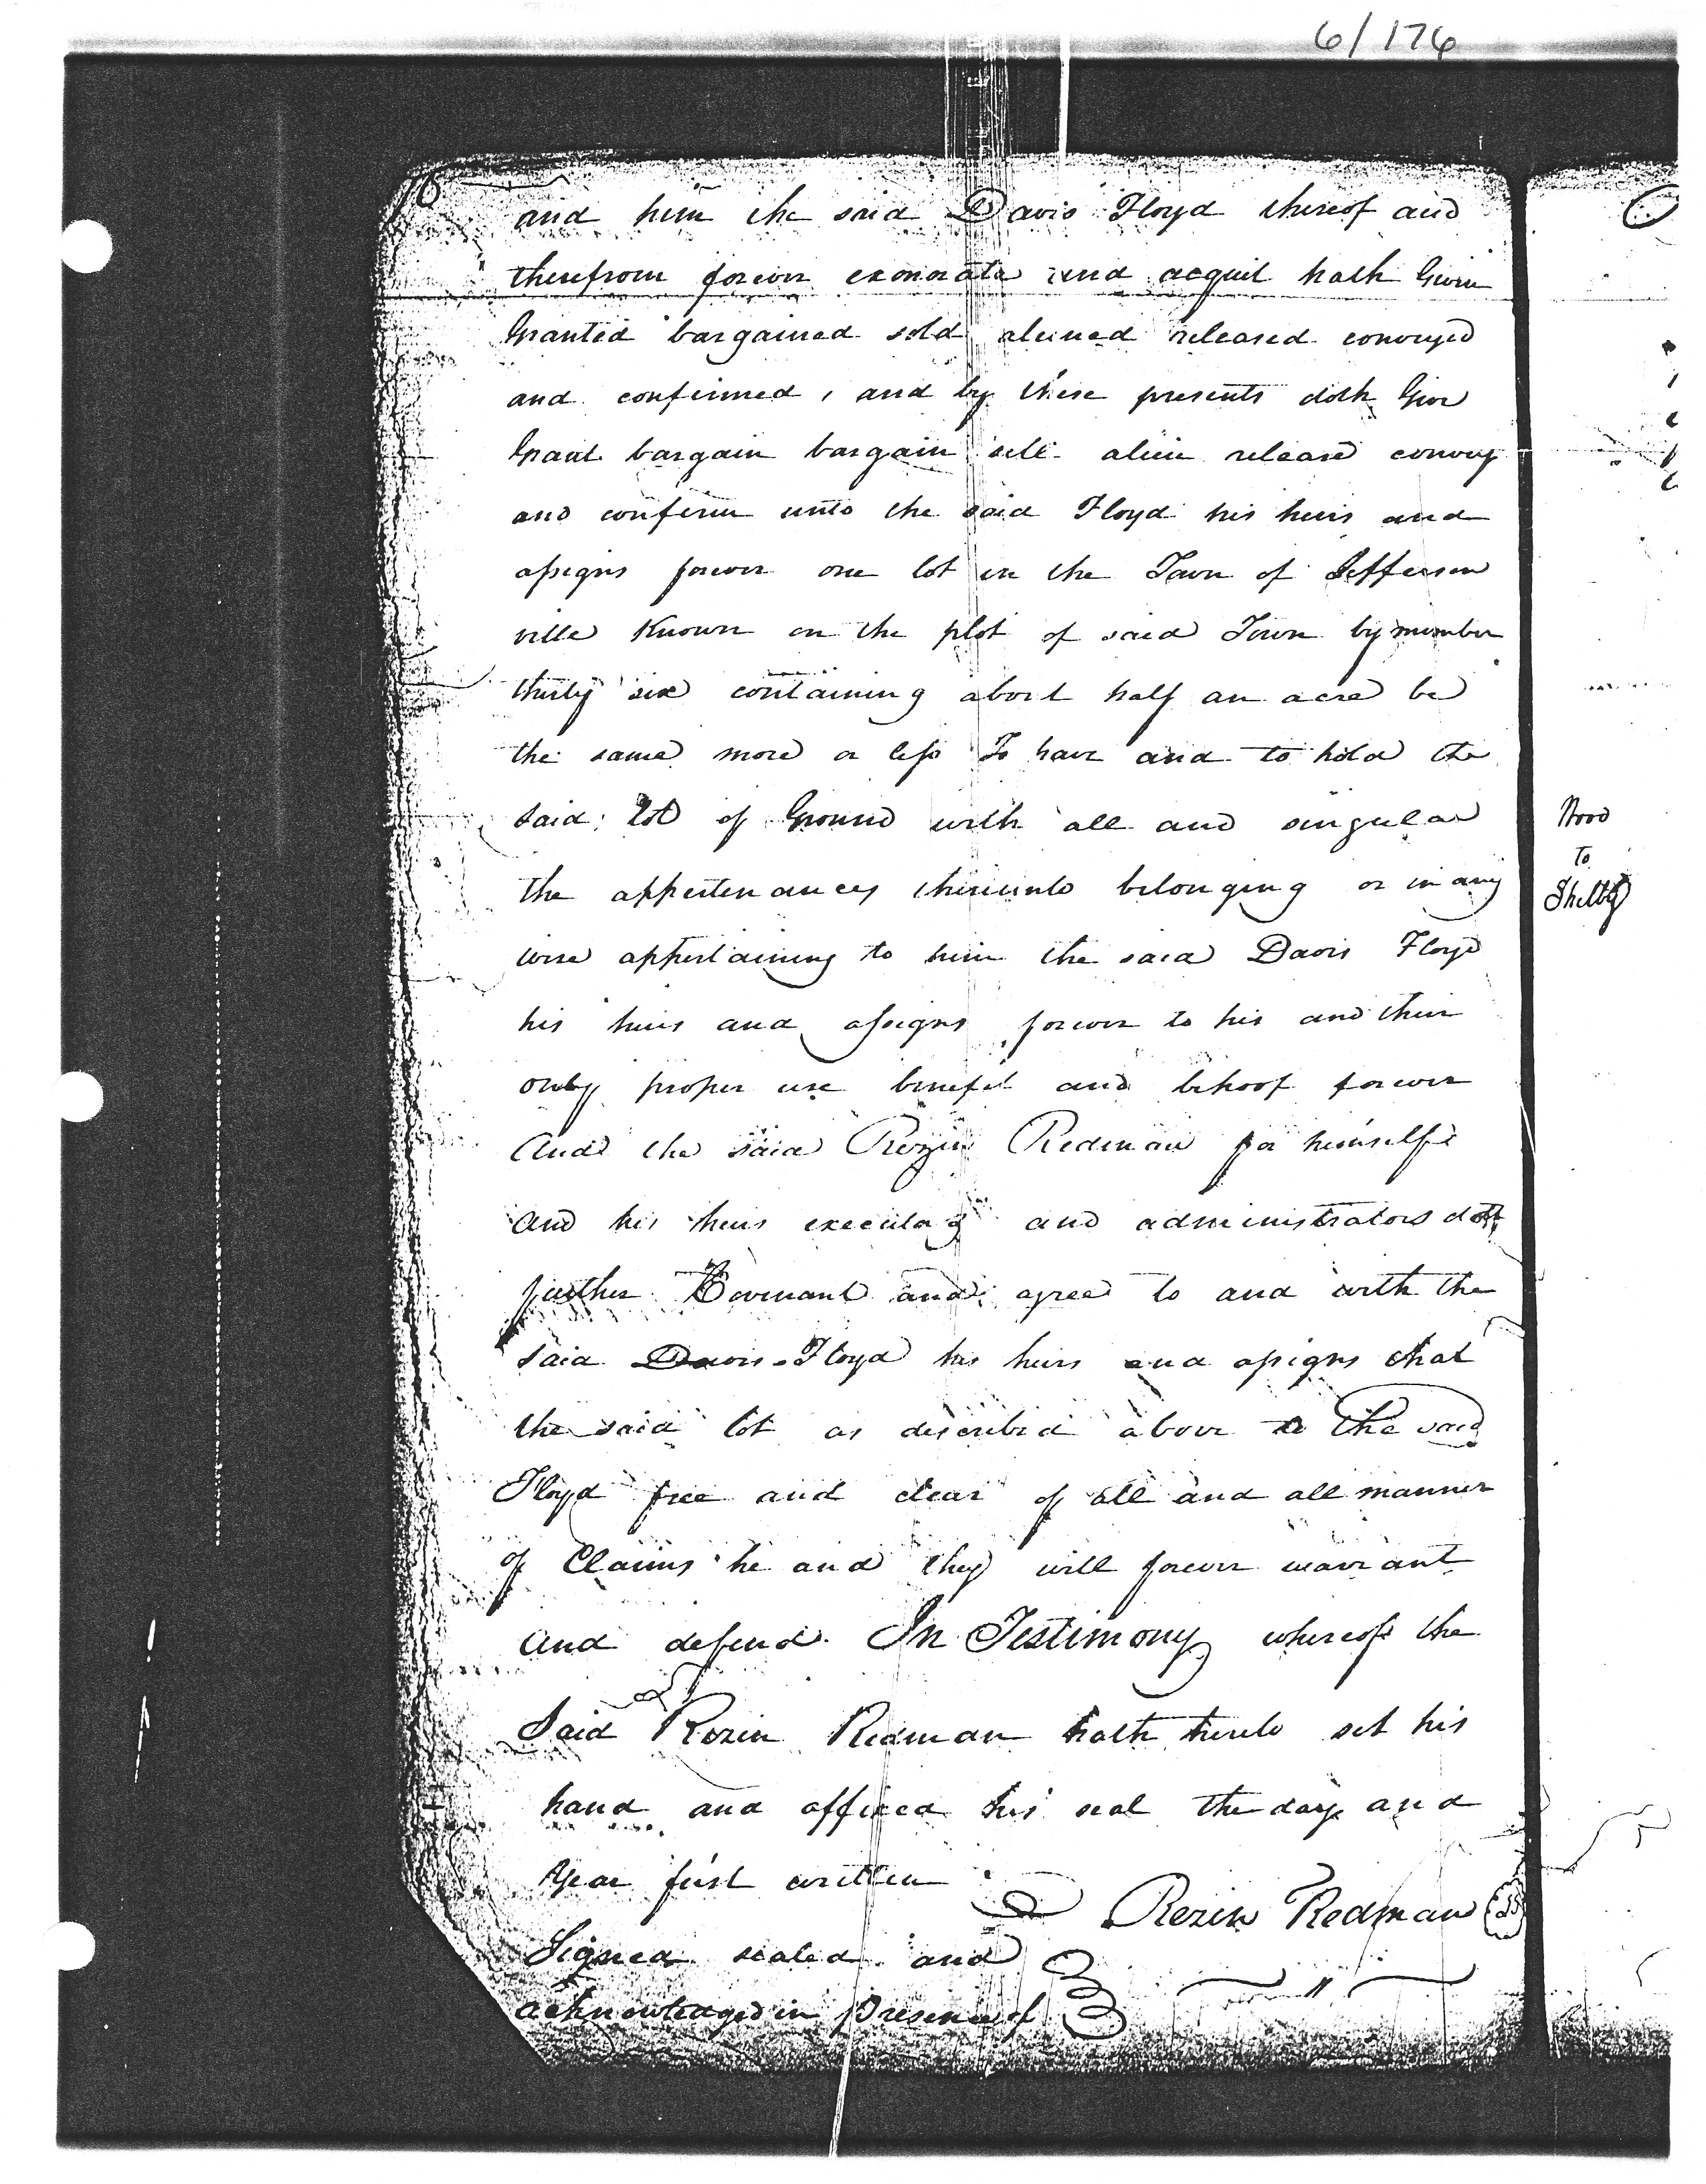 6/176
and him the said Davis Floyd thereof and
therefrom forever exonorate and acquit hath Given
Granted bargained sold aliened released conveyed
and confirmed, and by these presents doth Give
Grant bargain bargain sell alien release convey
and confirm unto the said Floyd his heirs and
assigns forever one lot in the Town of Jefferson
ville Known on the plot of said Town by number
thirty six containing about half an acre be
the same more or less To have and to hold the
said lot of Ground with all and singular
the appertenances thereunto belonging or in any
wise appertaining to him the said Davis Floyd
his heirs and assigns forever to his and their
only proper use benefit and behoof forever
And the said Rezin Redman for himself
and his heirs executors and administrators doth
further Covenant and agree to and with the
said Davis Floyd his heirs and assigns that
the said lot as described above to the said
Floyd free and clear of all and all manner
of Claims he and they will forever warrant
and defend. In Testimony whereof the
Said Rezin Redman hath hereto set his
hand and affixed his seal the day and
Year first written
Rezin Redman
Signed sealed and
acknowledged in presence of
to
Shelby